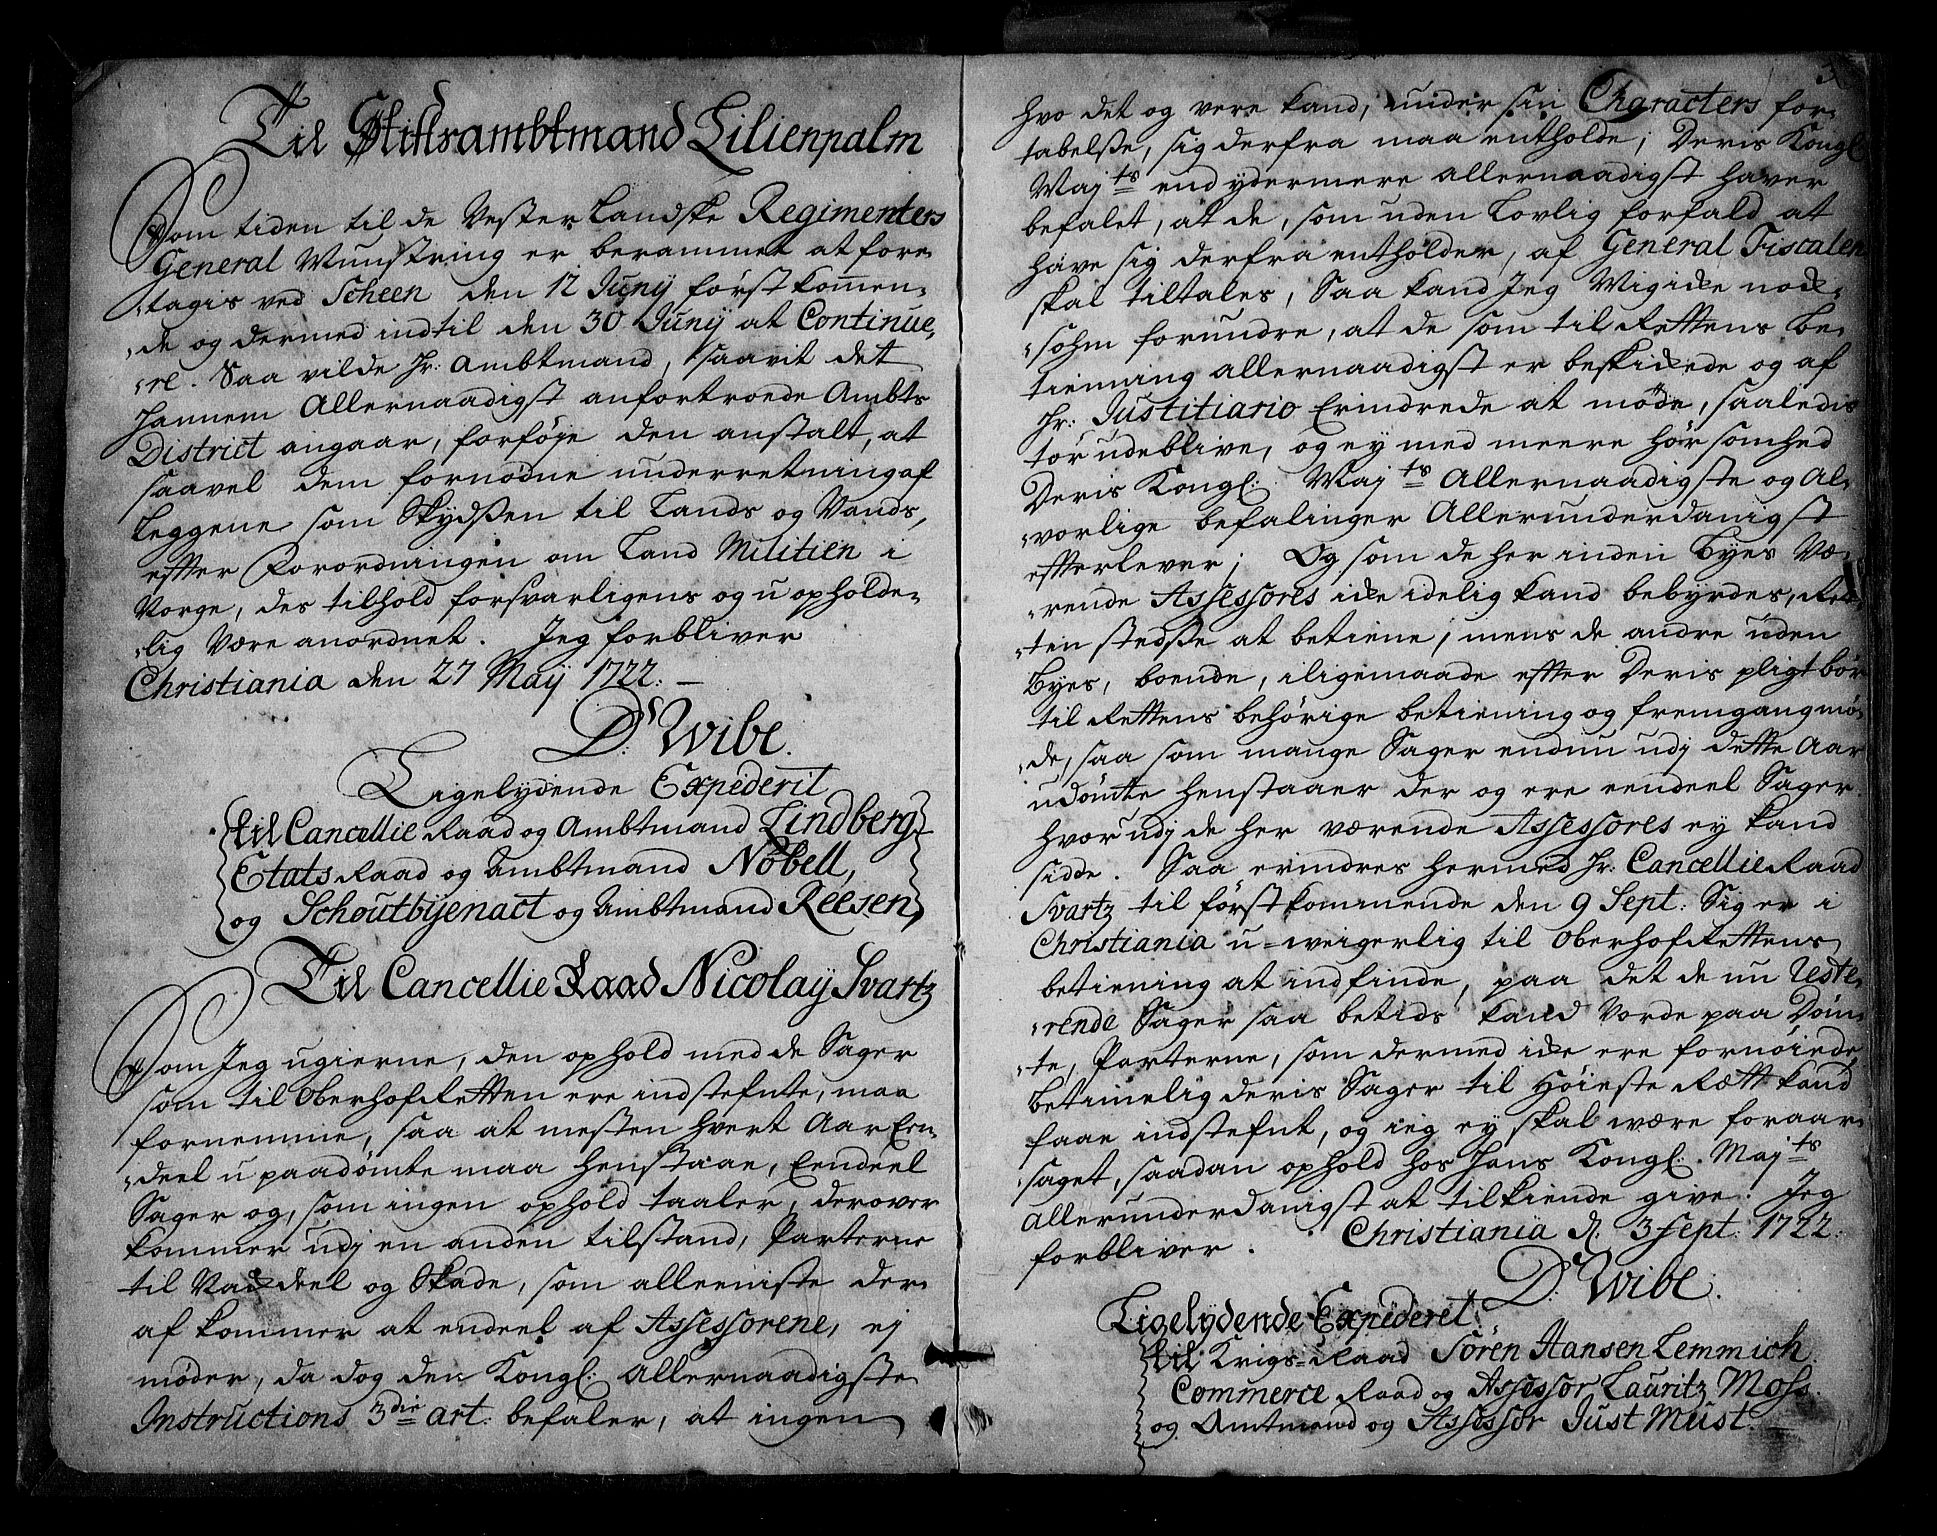 Til Stiftsambtmand Lilienpalm
Som tiden til de Vester Landske Regimenters
General Munstring er berammet at fore¬
¬tagis ved Scheen den 12 Junÿ førstkommen¬
¬de og dermed indtil den 30 Junÿ at Continue¬
¬re. Saa vilde Hr: Ambtmand, saavit det
Hannem Allernaadigst anfortroede Ambts
District angaar, forføje den anstalt, at
saavel dem fornødne underretning af
Leggene som Skydsen til Lands og Vands,
efter Forordningen om Land Militien i
Norge, des tilhold forsvarligens og uopholde¬
¬lig være anordnet. Jeg forbliver
Christiania den 27 Maÿ 1722.
D: Wibe.
Ligelydende Expederit
til Cancellie Raad og Ambtmand Lindberg
Etats Raad og Ambtmand Nobell,
og Schoutbÿenact og Ambtmand Reesen,
Til Cancellie Raad Nicolaÿ Svartz
Som Jeg ugierne, den ophold med de Sager
som til Oberhofretten ere indstefnte, maa
fornemme, saa at mesten hvert Aar Een¬
¬deel upaadømte maa henstaae, Eendeel
Sager og, som ingen ophold taaler, derover
kommer udj en anden tilstand, Parterne
til Vaddeel og Skade, som alleeniste der¬
af kommer at endeel af Assessorene, ej
møder, da dog den Kongl: Allernaadigste
Instructions 3die art: befaler, at ingen
3
hvo det og vere kand, under sin Characters for¬
tabelse, sig derfra maa entholde; Deris Kongl:
Majts end ydermere allernaadigst haver
befalet, at de, som uden Lovlig forfald at
have sig derfra entholder, af General Fiscalen
skal tiltales, Saa kand Jeg Migicke nock¬
¬sohm forundre, at de som til Rettens Be¬
tienning allernaadigst er beskickede og af
Hr: Justitiario Erindrede at møde, saaledis
tør udeblive, og ey med meere hørsomhed
Deris Kongl: Majts Allernaadigste og Al¬
¬vorlige befalinger Allerunderdanigst
efterlever; Og som de her inden Byes Væ¬
¬rende Assessores icke idelig kand bebyrdes, Ret¬
¬ten stedse at betiene; mens de andre uden
Byes, boende, iligemaade efter Deris pligt bør
til Rettens behørige betiening og fremgang mø¬
¬de, saa som mange Sager endnu udj dette Aar
udømte henstaaer der og ere eendeel Sager
hvor udj de her værende Assessores ey kand
sidde. Saa erindres hermed Hr: Cancellie Raad
Svartz til førstkommende den 9 Sept: Sig er i
Christiania u=weigerlig til Oberhofrettens
betiening at indfinde, paa det de nu Reste¬
¬rende Sager saa betids kand vorde paa Døm¬
¬te, Parterne, som dermed icke ere fornøiede,
betimelig deris Sager til Høieste Rætt kand
faae indstefnt, og ieg ey skal wære foraar¬
¬saget, saadan ophold hos Hans Kongl: Majts
allerunderdanigst at tilkiende give. Jeg
forbliver. Christiania d. 3 Sept: 1722.
D: Wibe.
Ligelydende Expederet
til Krigs=Raad Søren Hansen Lemmich
Commerce Raad og Assessor Lauritz Moss
og Amtmand og Assessor Just Must.